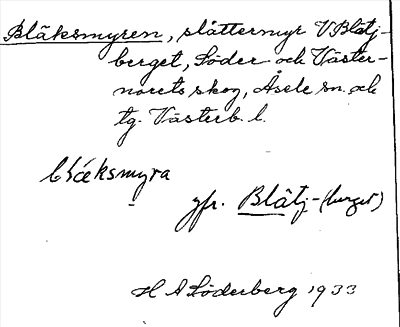 Blåksmyren, slåttermyr V Blåtj-
berget, Söder- och Väster-
norets skog, Åsele sn. och
tg. Västerb. l.
blæksmyra
jfr. Blåtj-(berget)
H A Söderberg 1933